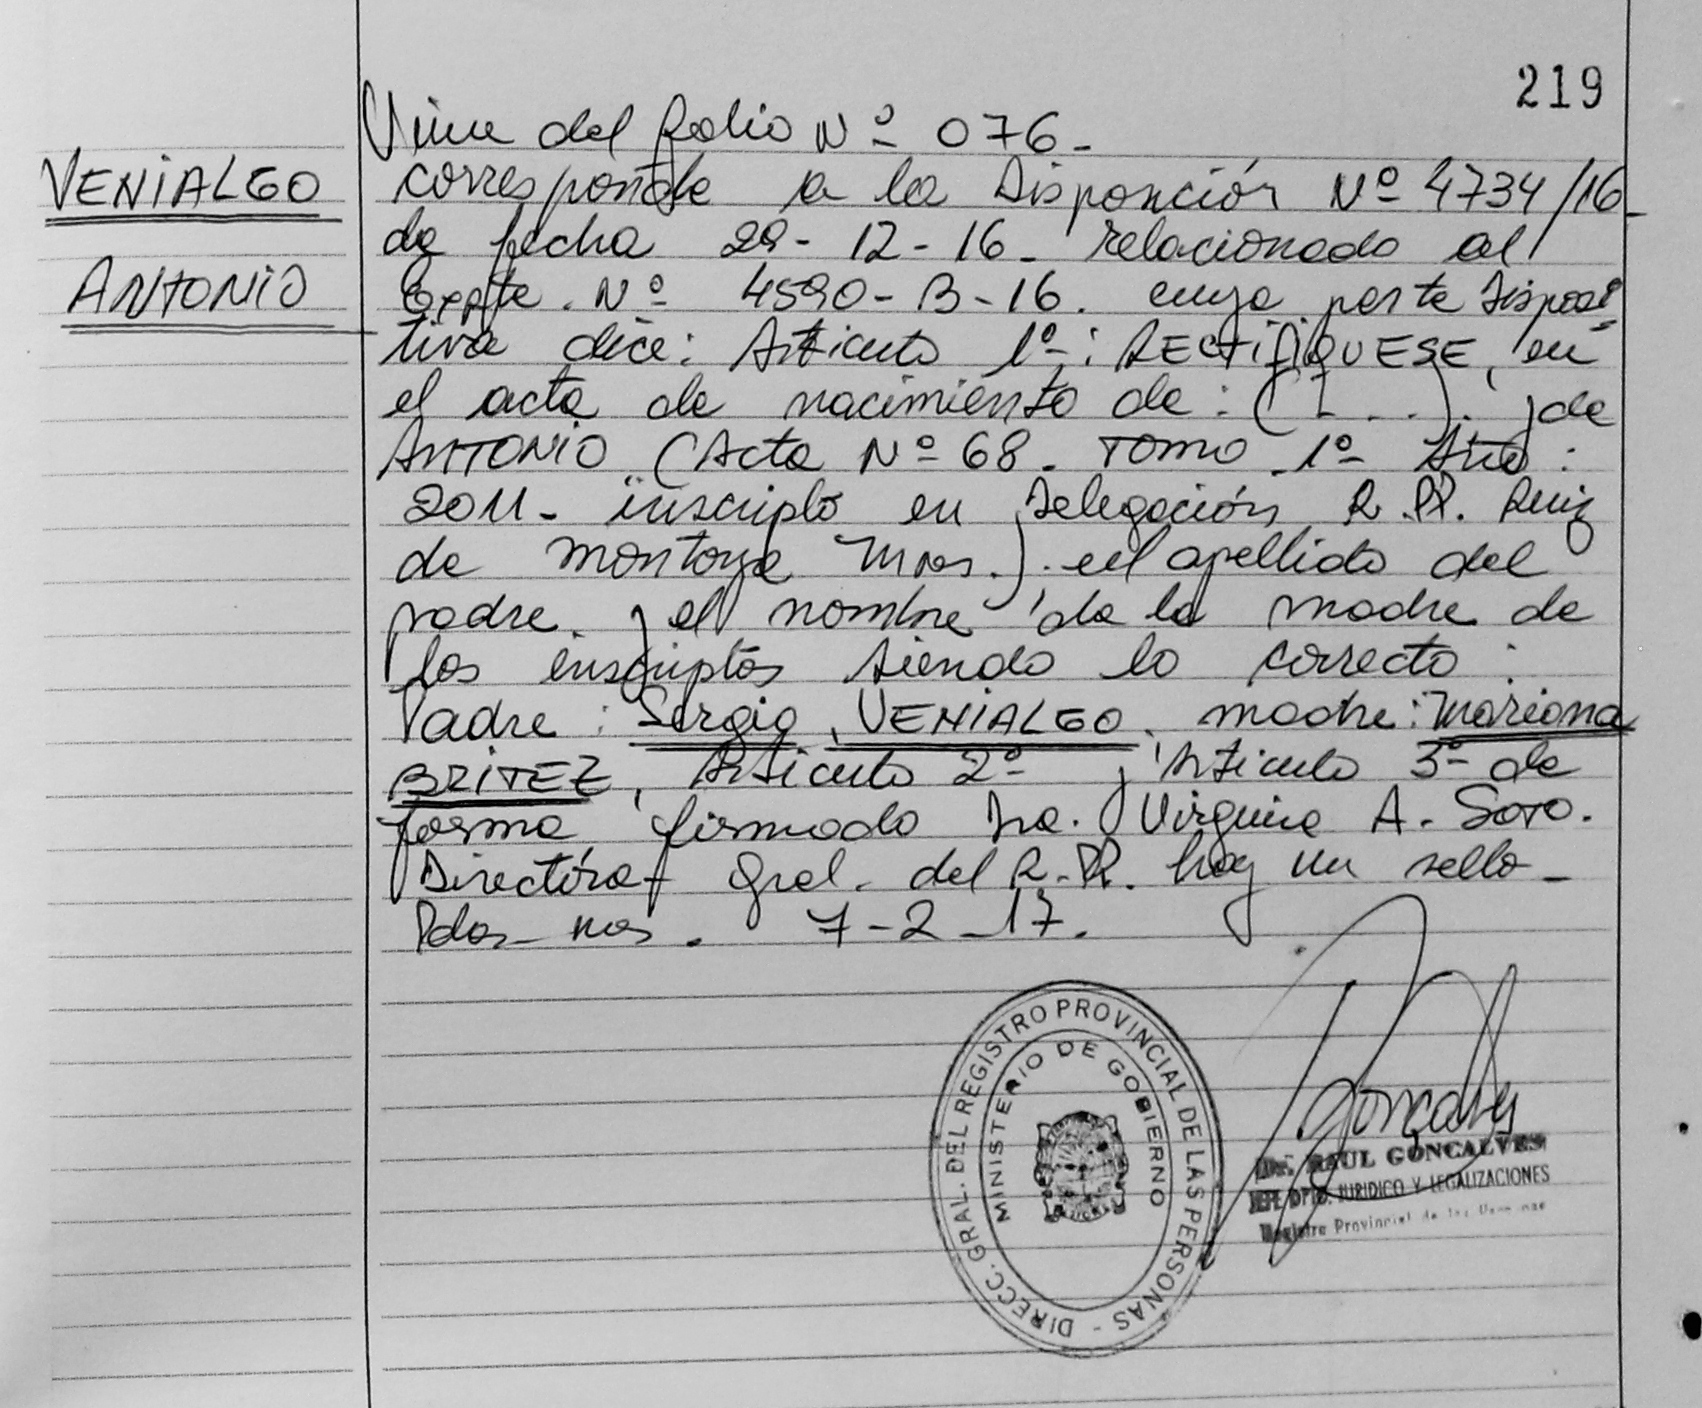 219
VENIALGO
ANTONIO
Viene del folio Nº 076-
corresponde a la Disposición Nº 4734/16-
de fecha 29-12-16- relacionado al
Expte. Nº 4590-B-16. cuya parte disposi-
tiva dice: Articulo 1º: RECTIFIQUESE, en
el acta de nacimiento de: (...). y de
ANTONIO (Acta Nº 68. Tomo 1º Año:
2011- inscripto en Delegación R.PP. Ruiz
de Montoya Mnes.). el apellido del
padre. y el nombre de la madre de
los inscriptos siendo lo correcto:
Padre: Sergio VENIALGO. madre: Mariana
BRITEZ, Articulo 2º y Articulo 3º de
forma firmado Dra. Virginia A. Soto.
Directora Gral. del R.PP. hay un sello-
Pdas- Mnes. 7-2-17.
DIRECC. GRAL. DEL REGISTRO PROVINCIAL DE LAS PERSONAS -
MINISTERIO DE GOBIERNO
Goncalves
Dr. RAUL GONCALVES
JEFE DPTO. JURIDICO Y LEGALIZACIONES
Registro Provincial de las Personas